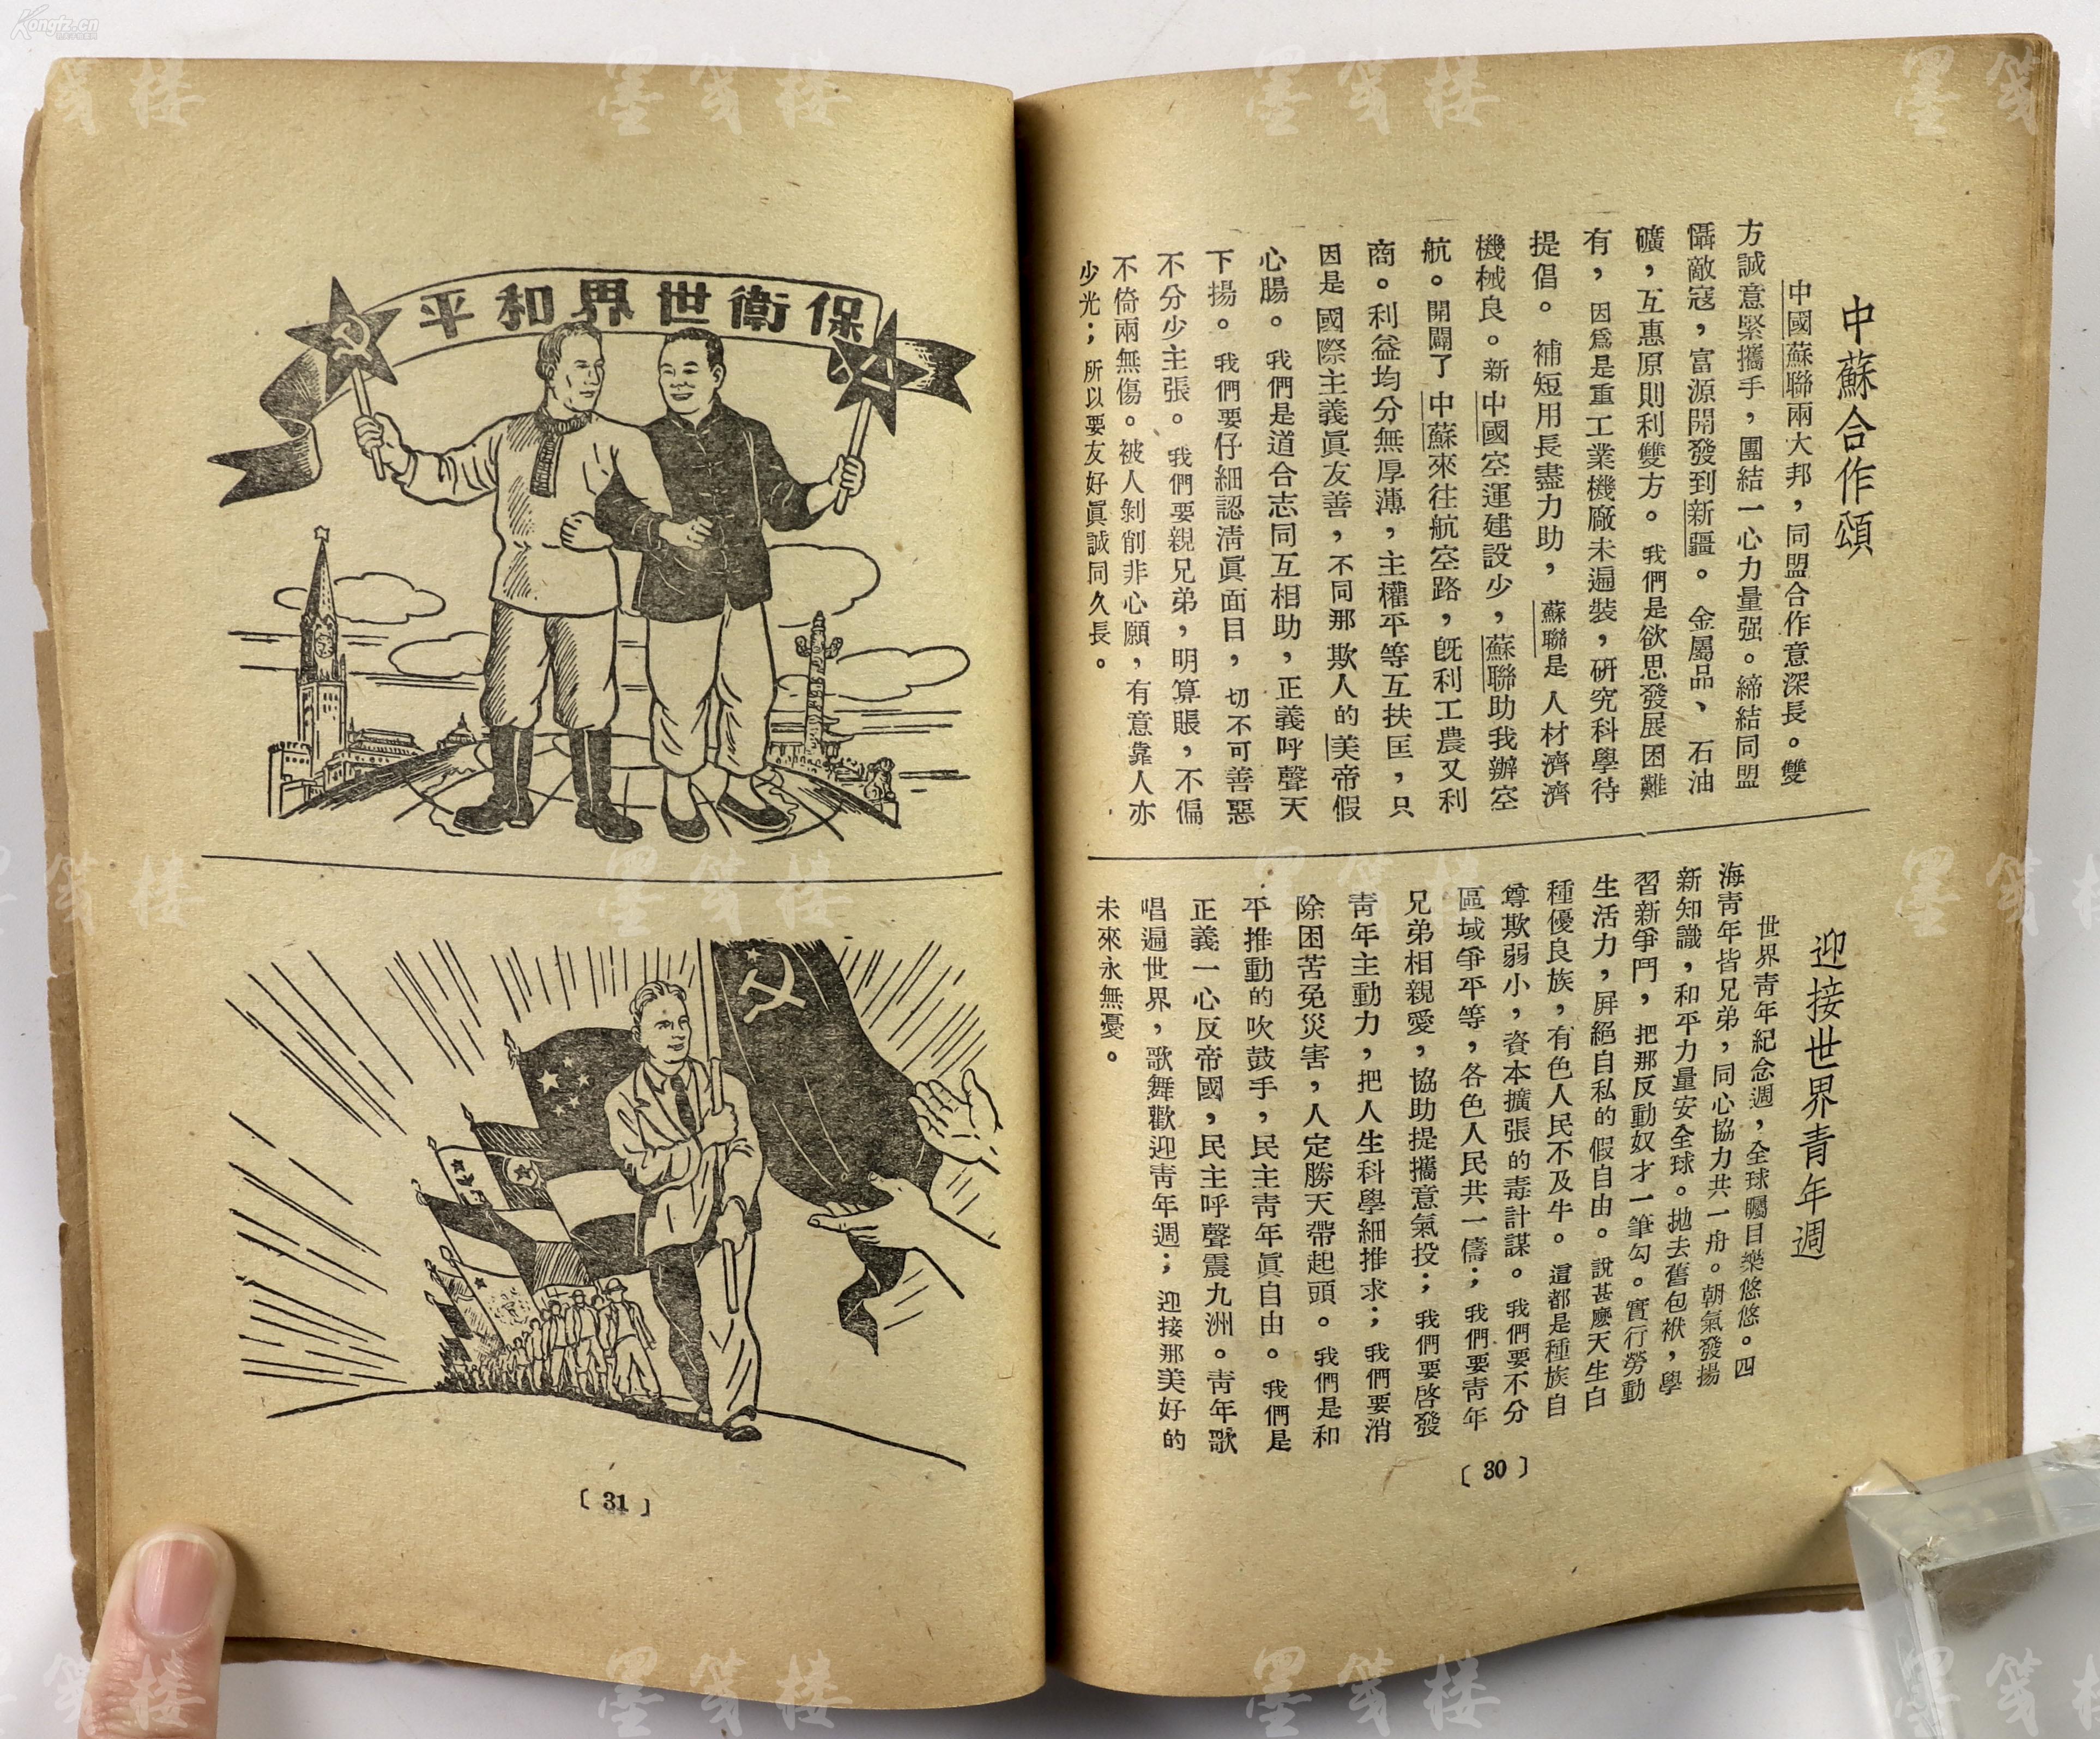 中蘇合作頌
中國蘇聯兩大邦，同盟合作意深長。雙
方誠意緊攜手，團結一心力量强。締結同盟
懾敵寇，富源開發到新疆。金屬品、石油
礦，互惠原則利雙方。我們是欲思發展困難
有，因爲是重工業機廠未遍裝，研究科學待
提倡。補短用長盡力助，蘇聯是人材濟濟
機械良。新中國空運建設少，蘇聯助我辦空
航。開闢了中蘇來往航空路，旣利工農又利
商。利益均分無厚薄，主權平等互扶匡，只
因是國際主義眞友善，不同那欺人的美帝假
心腸。我們是道合志同互相助，正義呼聲天
下揚。我們要仔細認淸眞面目，切不可善惡
不分少主張。我們要親兄弟，明算賬，不偏
不倚兩無傷。被人剝削非心願，有意靠人亦
少光；所以要友好眞誠同久長。
迎接世界青年週
世界靑年紀念週，全球矚目樂悠悠。四
海靑年皆兄弟，同心協力共一舟。朝氣發揚
新知識，和平力量安全球。拋去舊包袱，學
習新爭鬥，把那反動奴才一筆勾。實行勞動
生活力，屏絕自私的假自由。說甚麼天生白
種優良族，有色人民不及牛。這都是種族自
尊欺弱小，資本擴張的毒計謀。我們要不分
區域爭平等，各色人民共一儔；我們要靑年
兄弟相親愛，協助提攜意氣投；我們要啓發
靑年主動力，把人生科學細推求；我們要消
除困苦免災害，人定勝天帶起頭。我們是和
平推動的吹鼓手，民主靑年眞自由。我們是
正義一心反帝國，民主呼聲震九洲。靑年歌
唱遍世界，歌舞歡迎靑年週；迎接那美好的
未來永無憂。
〔30〕
保衛世界和平
〔31〕
Kongfz.cn
墨笺楼